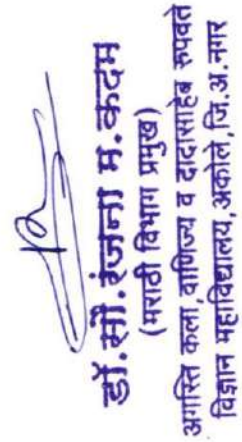 डॉ. सौ. रंजना म. कदम
(मराठी विभाग प्रमुख)
अगस्ति कला, वाणिज्य व दादासाहेब रुपवते
विज्ञान महाविद्यालय, अकोले, जि. अ. नगर